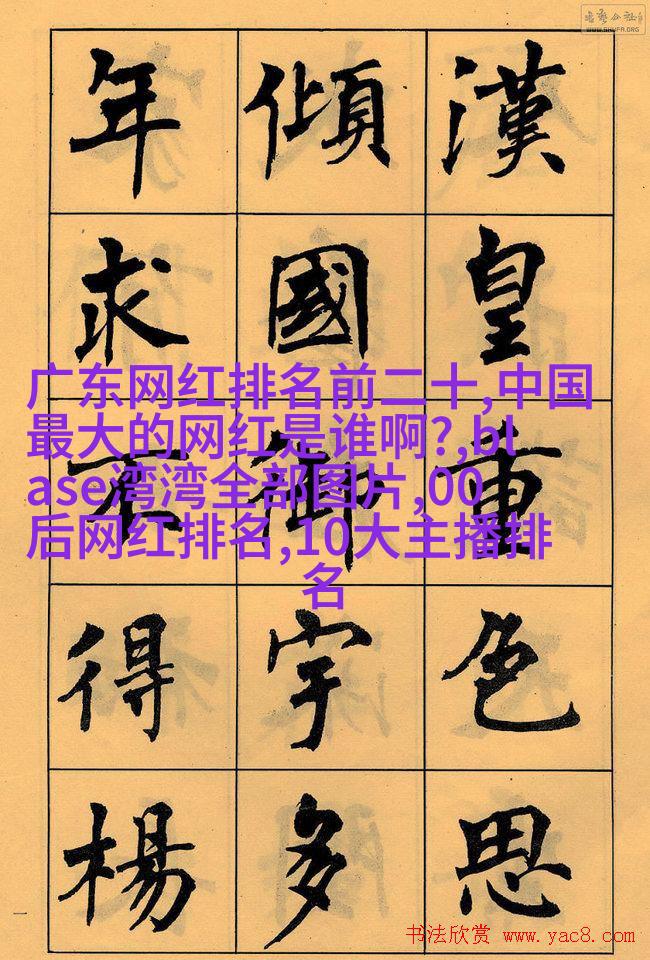 漢皇重色思
傾國御宇多
年求不得楊
广东网红排名前二十,中国
最大的网红是谁啊?,bl
ase湾湾全部图片,00
后网红排名,10大主播排
名
WWW.SHUFA.ORG
一
书法欣赏 www.yac8.com